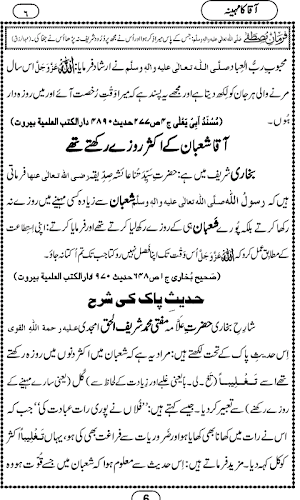 ٦ آقا کا مہینہ
فرمانِ مصطفٰے صلَّی اللہ تعالٰی علیہ والہٖ وسلَّم: جس کے پاس میرا ذکر ہوا اور اُس نے مجھ پر دُرُود شریف نہ پڑھا اُس نے جفا کی۔
محبوبِ ربُّ العِباد صلَّی اللہ تعالٰی علیہ والہٖ وسلَّم نے ارشاد فرمایا: اللہ عَزَّوَجَلَّ اس سال
مرنے والی ہر جان کو لکھ دیتا ہے اور مجھے یہ پسند ہے کہ میرا وَقتِ رخصت آئے اور میں روزہ دار
ہوں۔ (مُسْنَدُ اَبِیْ یَعْلٰی ج٤ ص٢٧٧ حدیث ٤٨٩٠ دارالکتب العلمیة بیروت)
آقا شعبان کے اکثر روزے رکھتے تھے
بخاری شریف میں ہے: حضرتِ سیِّدَتُنا عائشہ صِدّیقہ رضی اللہ تعالٰی عنہا فرماتی
ہیں کہ رسولُ اللہ صلَّی اللہ تعالٰی علیہ والہٖ وسلَّم شعبان سے زیادہ کسی مہینے میں روزے نہ
رکھا کرتے بلکہ پورے شعبان ہی کے روزے رکھ لیا کرتے تھے اور فرمایا کرتے: اپنی اِستِطاعت
کے مطابق عمل کرو کہ اللہ عَزَّوَجَلَّ اُس وَقت تک اپنا فضل نہیں روکتا جب تک تم اُکتا نہ جاؤ۔
(صَحِیح بُخاری ج١ ص٦٤٨ حدیث ١٩٧٠ دارالکتب العلمیة بیروت)
حدیثِ پاک کی شرح
شارِحِ بخاری حضرتِ علّامہ مفتی محمد شریفُ الحق امجدی علیہ رحمۃ اللہ القوی
اِس حدیثِ پاک کے تحت لکھتے ہیں: مراد یہ ہے کہ شعبان میں اکثر دنوں میں روزہ رکھتے
تھے اسے تَغْلِیباً (تَغْ۔لی۔باً یعنی غلبے اور زیادت کے لحاظ سے) کُل (یعنی سارے مہینے کے
روزے رکھنے) سے تعبیر کر دیا۔ جیسے کہتے ہیں: ’’فُلاں نے پوری رات عبادت کی‘‘ جب کہ
اس نے رات میں کھانا بھی کھایا ہو اور ضَروریات سے فراغت بھی کی ہو، یہاں تَغْلِیباً اکثر
کو کُل کہہ دیا۔ مزید فرماتے ہیں: اِس حدیث سے معلوم ہوا کہ شعبان میں جسے قُوَّت ہو وہ
6